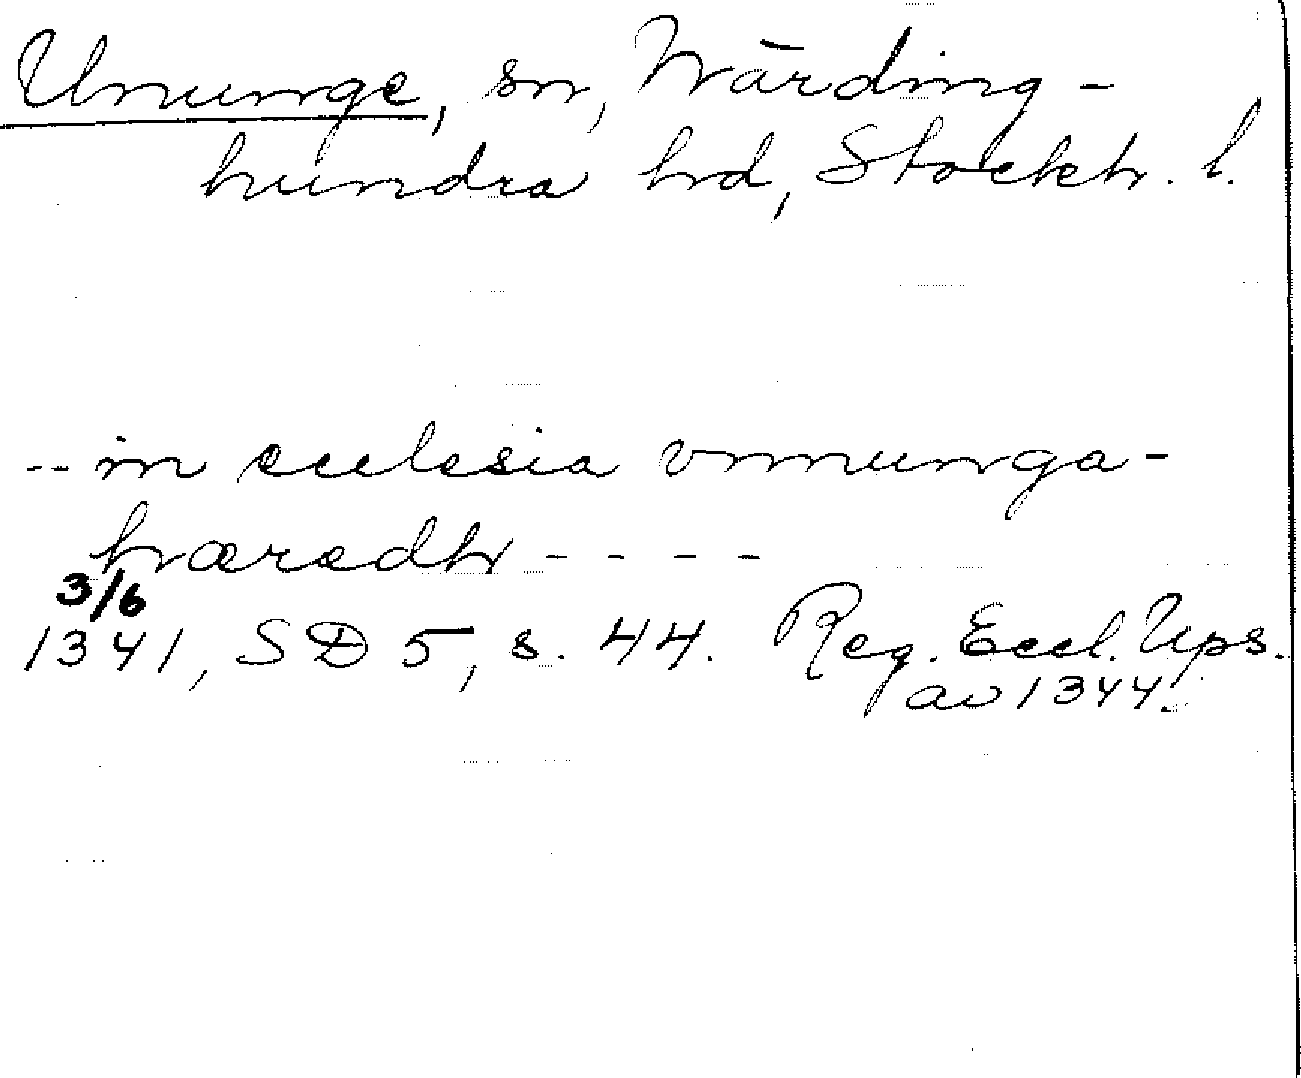 Ununge, sn, Närding-
hundra hd, Stockh. l.
-- in ecclesia vnnunga-
hæredh - - - -
3/6
1341, SD 5, s. 44. Reg. Eccl. Ups.
av 1344.